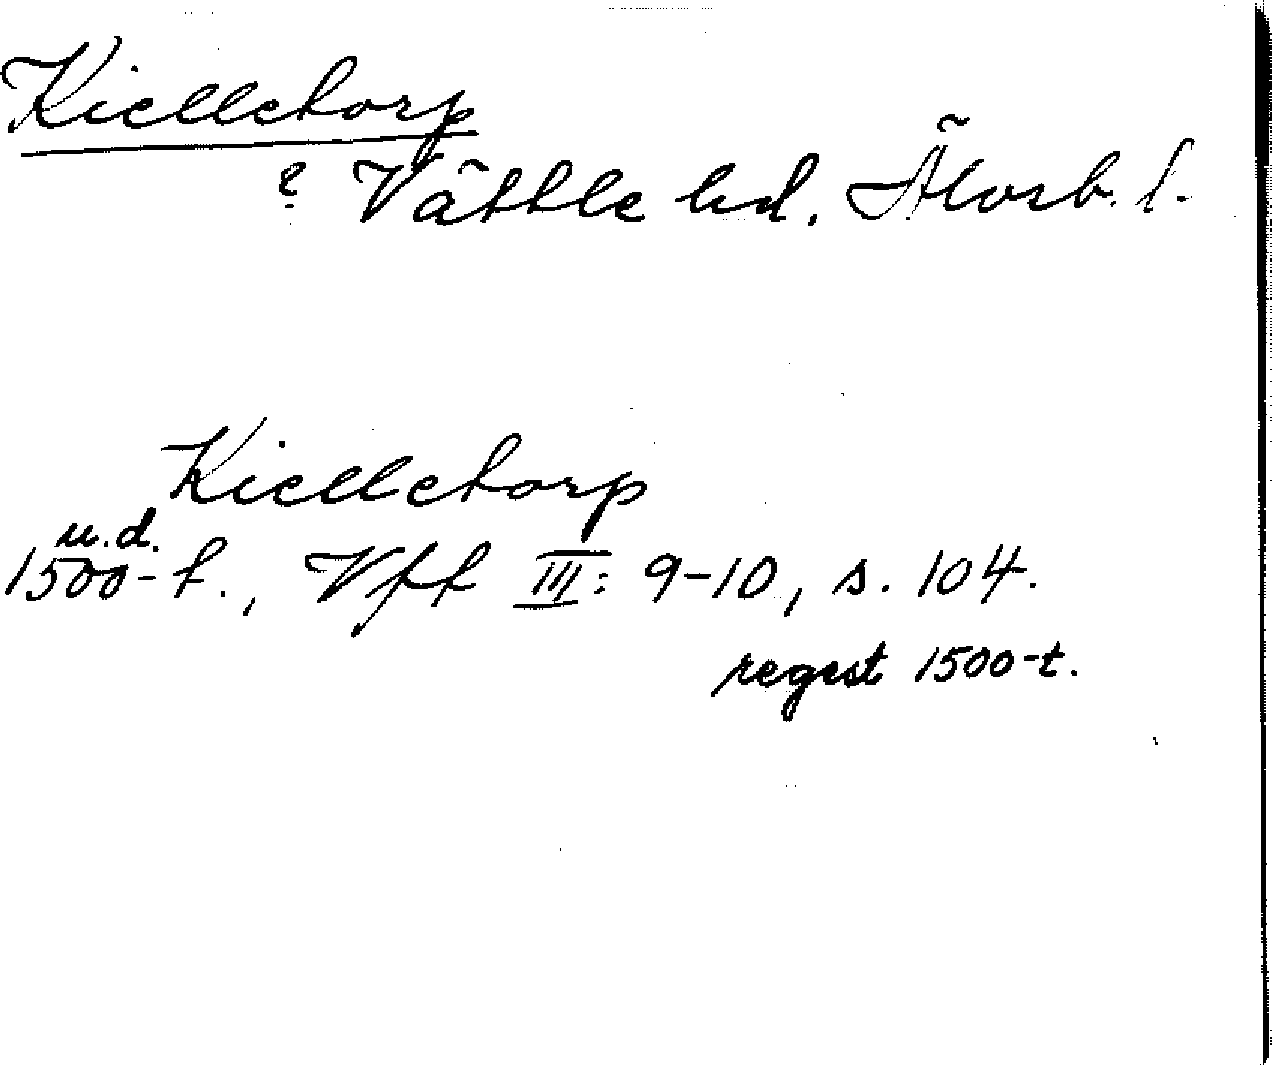 Kielletorp
? Vättle hd. Älvsb. l.
Kielletorp
u.d.
1500-t., Vfft III: 9-10, s. 104.
regest 1500-t.